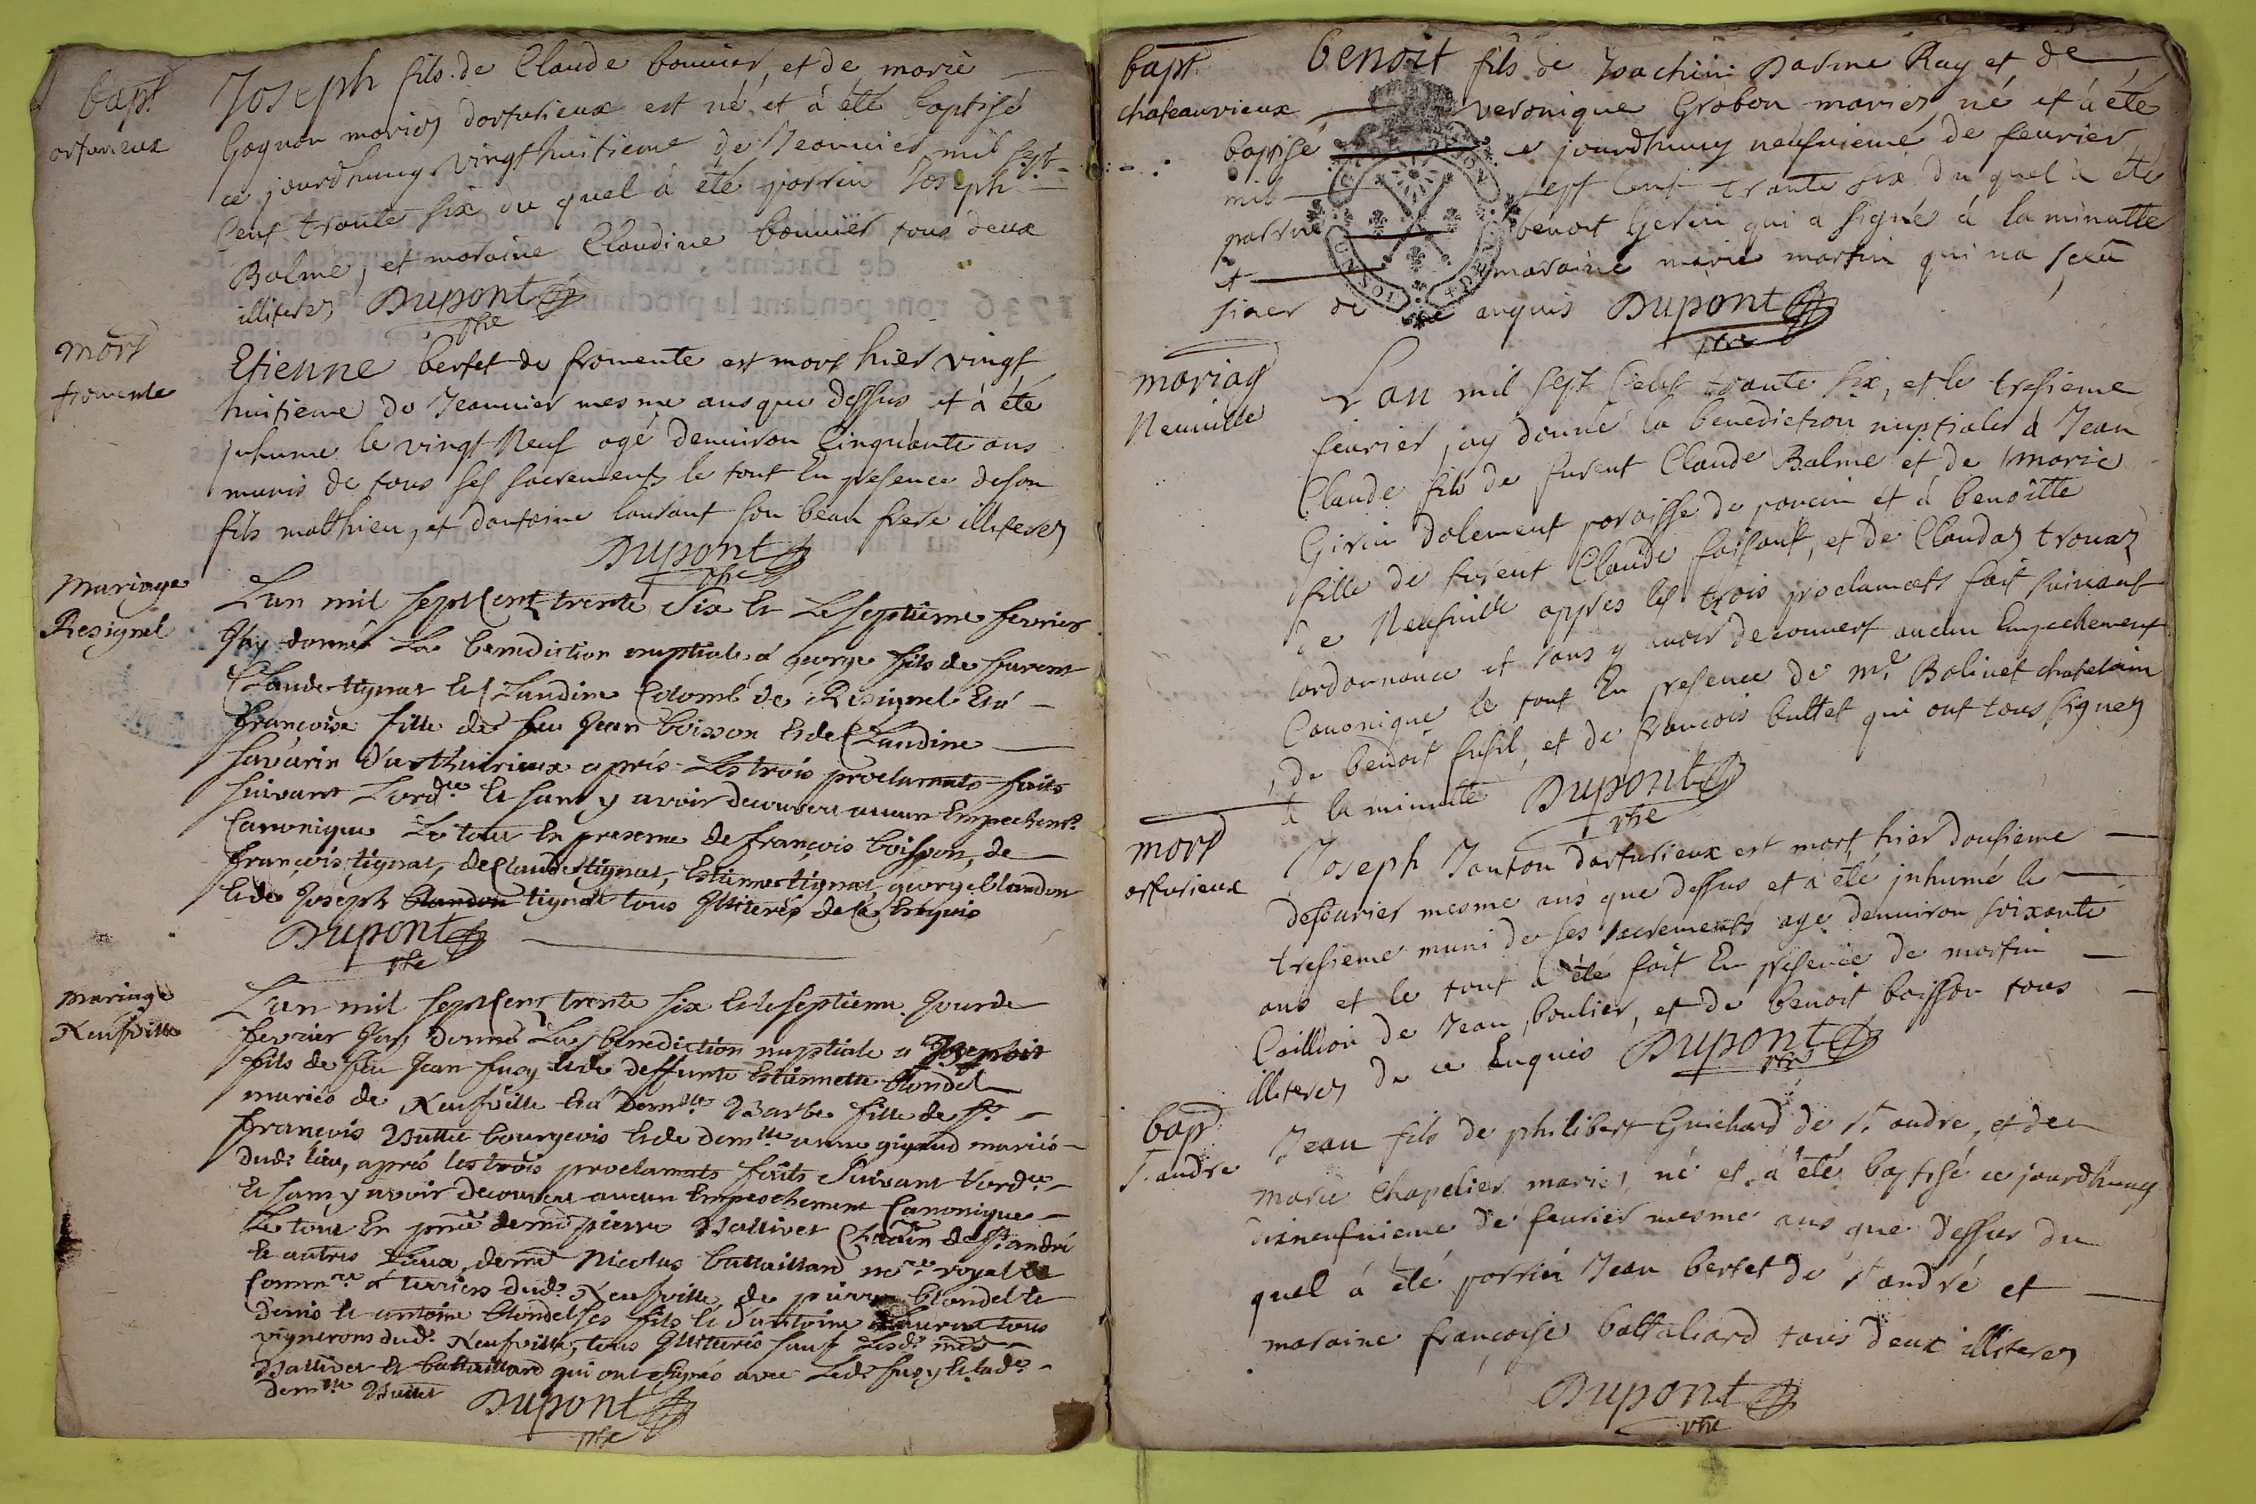 bapt.
arturieux
Joseph fils de Claude bouvier, et de marie
Gagnon mariez darturieux est né, et à été baptisé
ce jourdhuuy vingt huitieme de Jeanvier mil sept
Cent trante six du quel à été parrin Joseph
Balme, et maraine Claudine bouvier tous deux
illiterez Dupont
ptre
mort
fromente
Etienne bertet de fromente est mort hier vingt
huitieme de Jeanvier mesme ans que dessus et à été
inhume le vingt Neuf agé denuiron Cinquante ans
munis de tous ses sacrements le tout En presence de son
fils matthieu, et dantoine laurant son beau frere illiterez
Dupont
ptre
Mariage
Resignel
L'an mil sept Cent trente six Et Le septieme fevrier
J'ay donné La benediction nuptiale, à george fils de furent
Claude tignat Et Claudine Colomb de Resignel Et à
françoise fille de feu Jean boisson Et de Claudine
Savarin d'arthurieux aprés Les trois proclamats faits
suivant L'ord.ce Et sans y avoir decouvert aucun Empechem.t
Canonique Le tout En presence de françois boisson, de
françois tignat, de Claude tignat, Estienne tignat george blandon
Et de Joseph blandon tignat tous Illiterés de ce Enquis
Dupont
ptre
Mariage
Neufville
L'an mil sept Cent trente six Et le septieme Jour de
fevrier J'ay donné La benediction nuptiale a
fils de feu Jean fusy Et de deffunte Estiennette blondel
mariés de Neufville Et à Dem.lle Barbe fille de S.r
françois Buttet bourgeois Et de dem.lle anne gigaud mariés
dud.t lieu, aprés les trois proclamats faits suivant L'ord.ce
Et sans y avoir decouvert aucun Empechement Canonique
Le tout En pnce de me pierre Ballivet Chatain de St andré
Et autres Lieux, de me Nicolas battaillard no.re royal
Comm.re à terriers dud.t Neufville de pierre blondel Et
denis Et antoine blondel ses fils Et d'antoine Laurent tous
vignerons dud.t Neufville, tous Illiterés sauf Lesd.ts mes
Ballivet Et battaillard qui ont signés avec Led.t fusy Et lad.te
dem.lle Buttet Dupont
ptre
bapt.
chateauvieux
benoit fils de Joachim Darme Ray et de
veronique Grobon mariez né et à été
baptisé ce jourdhuuy neufuieme de feurier
mil sept Cent trante six du quel à été
parrin benoit Gerin qui a signé à la minutte
et maraine marie martin qui na sceu
siner de ce anquis Dupont
ptre
mariag
Neuuille
Lan mil sept Cent trante six, et le tresieme
feurier jay donné la benediction nuptiales à Jean
Claude fils de furent Claude Balme et de marie
Girin dolement paroisse de poncin et à benoitte
fille de furent Claude faisant, et de Claudaz trouaz
de Neufuille appres les trois proclamats fait suivant
lordonnance et sans y auoir decouuert aucun Empechement
Canonique le tout En presence de me Balivet chatelain
de benoit fusil, et de francois buttet qui ont tous signez
à la minutte Dupont
ptre
mort
arturieux
Joseph Janton darturieux est mort hier dousieme
defeurier mesme ans que dessus et à été inhumé le
tresieme muni de ses sacrements agé denuiron soixante
ans et le tout à été fait En presence de martin
Caillion de Jean boulier, et de benoit boisson tous
illiterez de ce Enquis Dupont
ptre
bap.
St. andre
Jean fils de philibert Guichard de St. andre, et de
marie Chapelier mariez né et à été baptisé ce jourdhuuy
dixneufuieme de feurier mesme ans que dessus du
quel à été parrin Jean bertet de St andré et
maraine françoise battaliard tous deux illiterez
Dupont
ptre